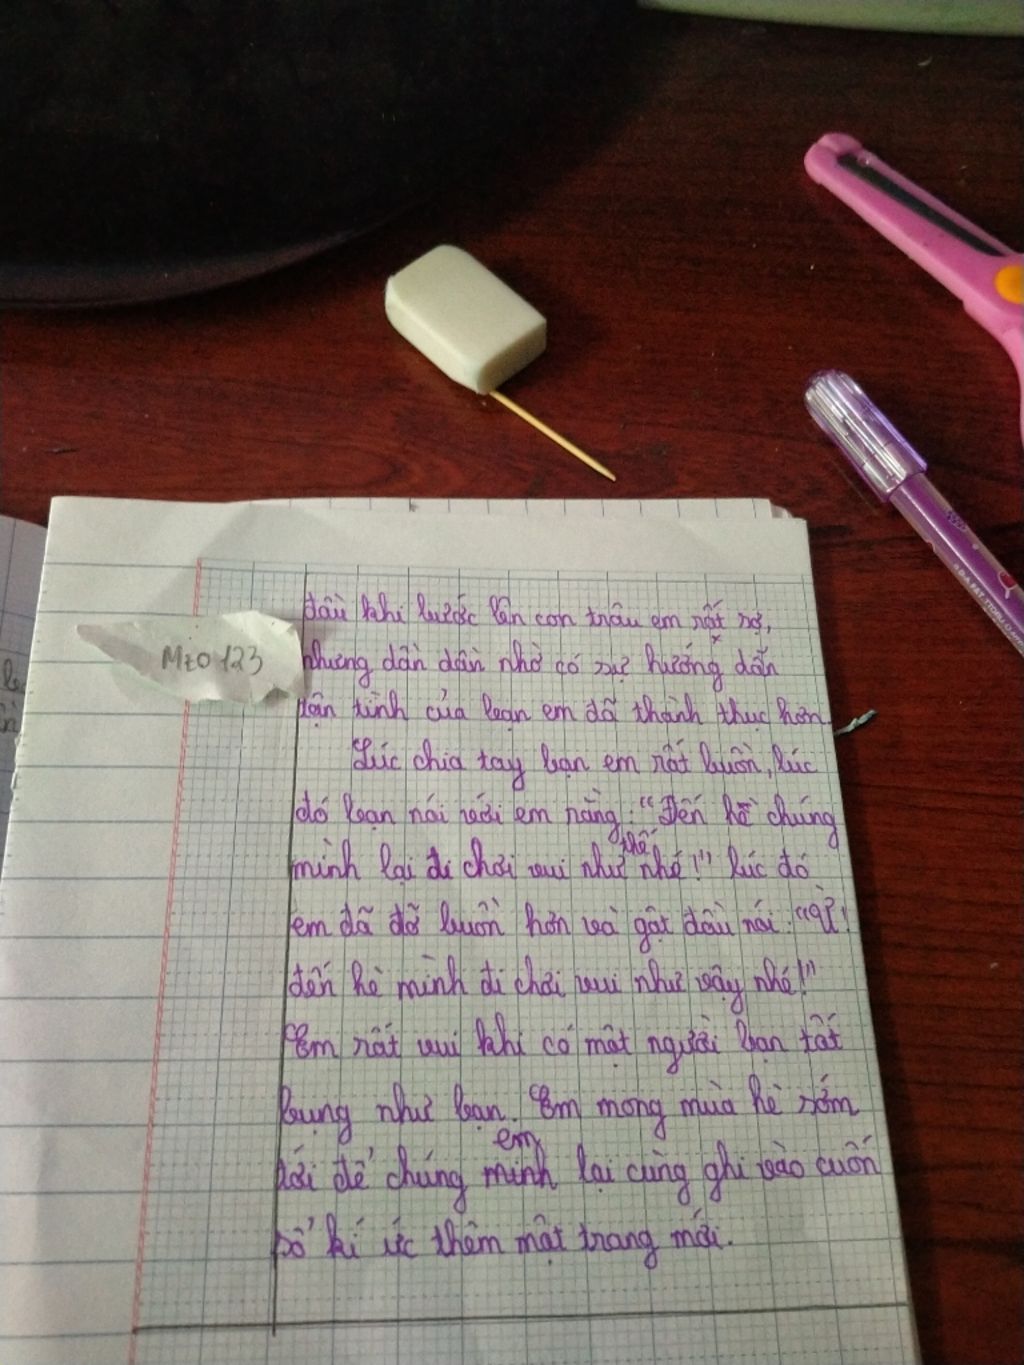 đầu khi bước lên con trâu em rất sợ,
MZO 123
nhưng dần dần nhờ có sự hướng dẫn
tận tình của bạn em đã thành thục hơn.
Lúc chia tay bạn em rất buồn, lúc
đó bạn nói với em rằng: "Đến hè chúng
mình lại đi chơi vui như thế nhé!" lúc đó
em đã đỡ buồn hơn và gật đầu nói: "Ừ!
đến hè mình đi chơi vui như vậy nhé!"
Em rất vui khi có một người bạn tốt
bụng như bạn. Em mong mùa hè sớm
em
tới để chúng mình lại cùng ghi vào cuốn
sổ kí ức thêm một trang mới.